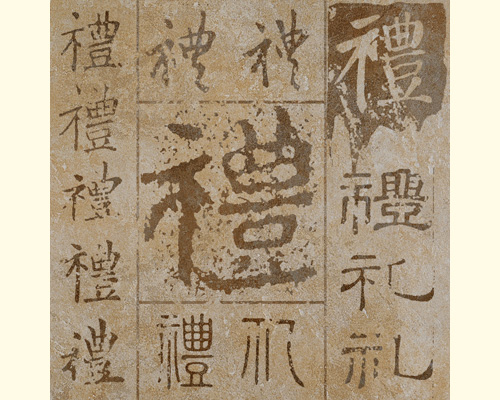 禮
禮
禮
禮
禮
禮 禮
禮
禮 礼
禮
禮
礼
礼